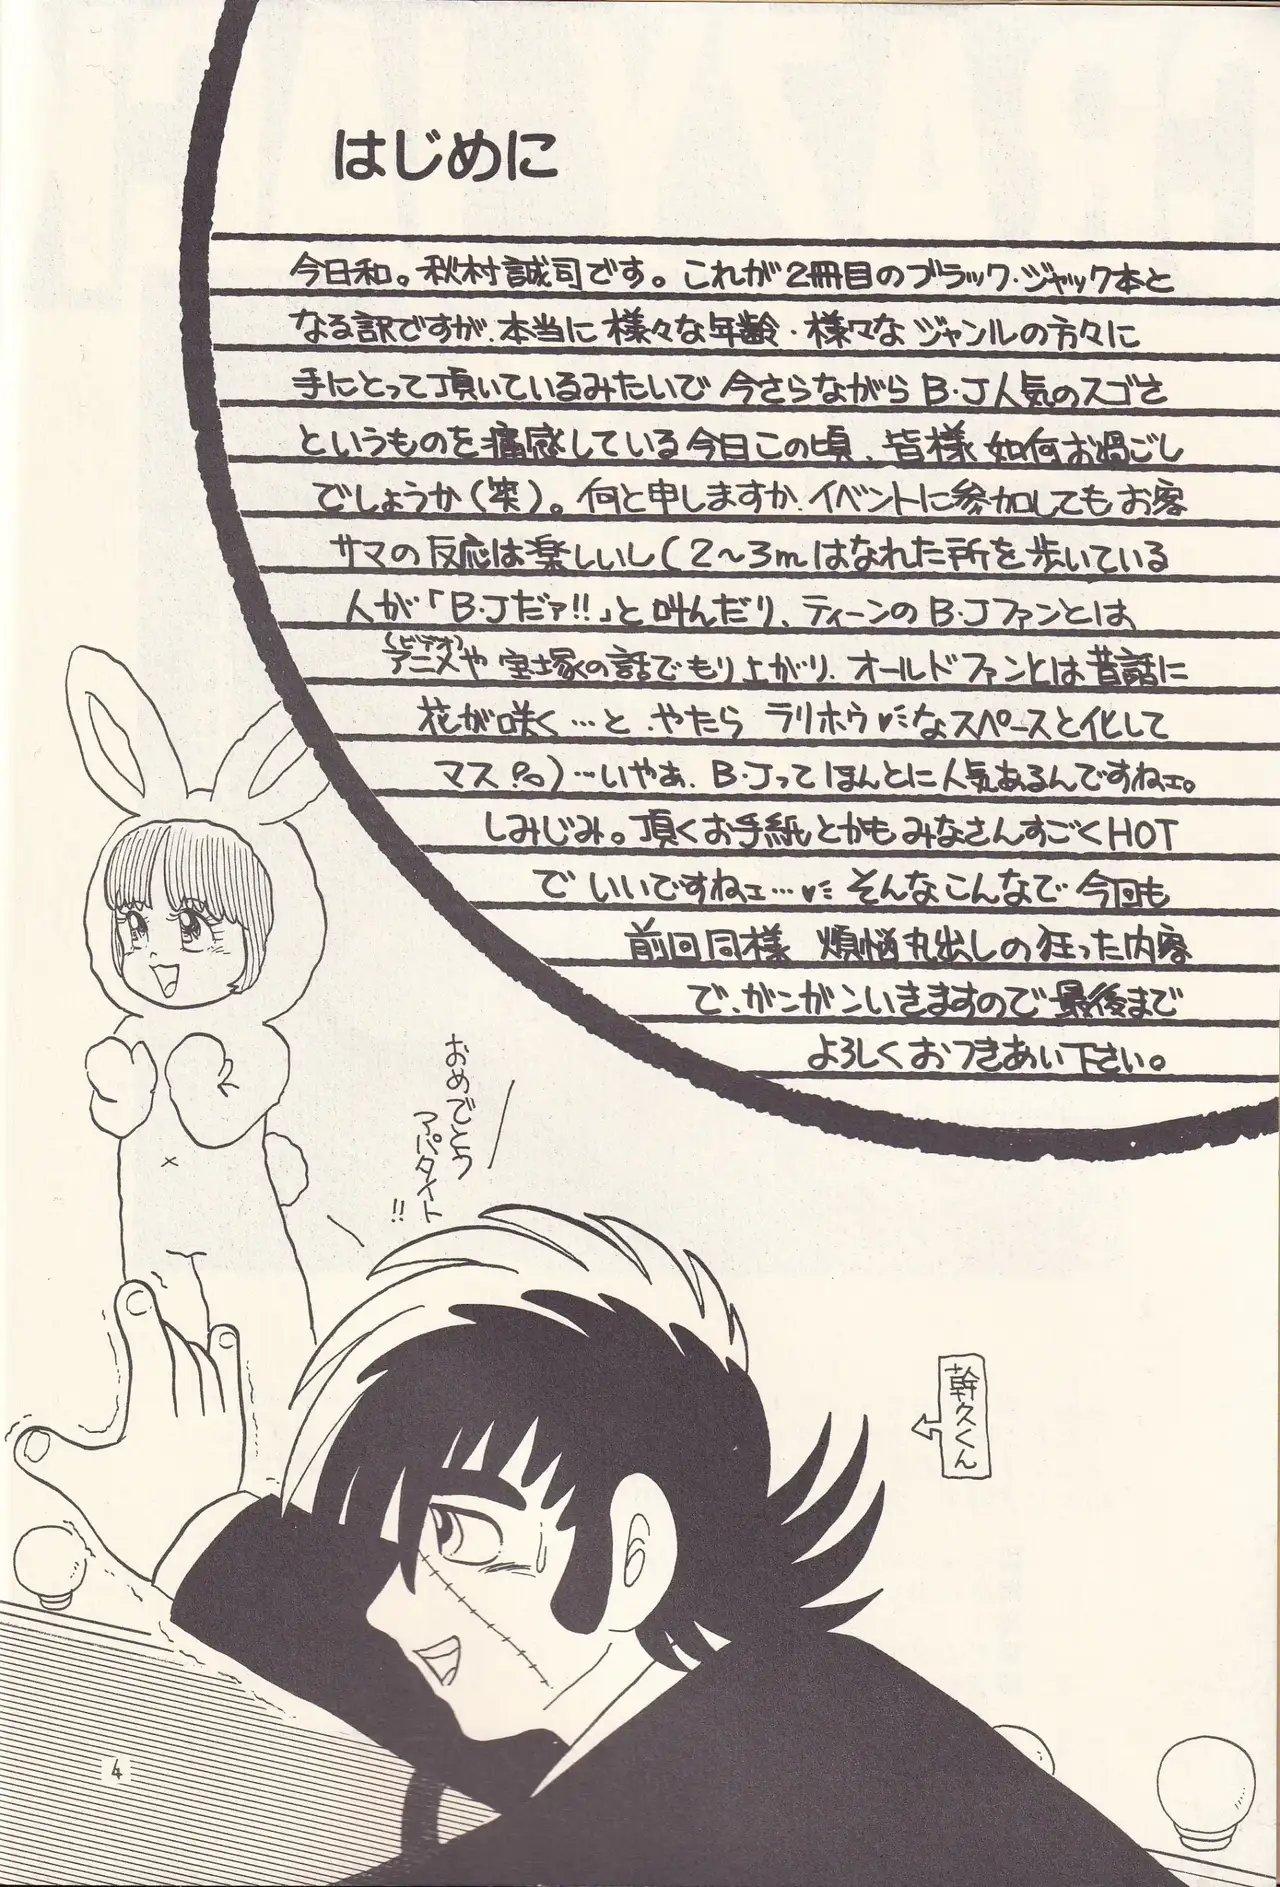 はじめに
今日和。秋村誠司です。これが2冊目のブラック・ジャック本と
なる訳ですが、本当に様々な年齢・様々なジャンルの方々に
手にとって頂いているみたいで今さらながらB・J人気のスゴさ
というものを痛感している今日この頃、皆様如何お過ごし
でしょうか(笑)。何と申しますか、イベントに参加してもお客
サマの反応は楽しいし(2〜3mはなれた所を歩いている
人が「B・Jだァ!!」と叫んだり、ティーンのB・Jファンとは、
アニメ(ビデオ)や宝塚の話でもり上がり、オールドファンとは昔話に
花が咲く…と、やたらラリホウ♥なスペースと化して
マス)…いやぁ、B・Jってほんとに人気あるんですねェ。
しみじみ。頂くお手紙とかもみなさんすごくHOT
でいいですねェ…♥そんなこんなで今回も
前回同様 煩悩丸出しの狂った内容
で、ガンガンいきますので最後まで
よろしくおつきあい下さい。
おめでとう
アパタイト!!
幹久くん
4